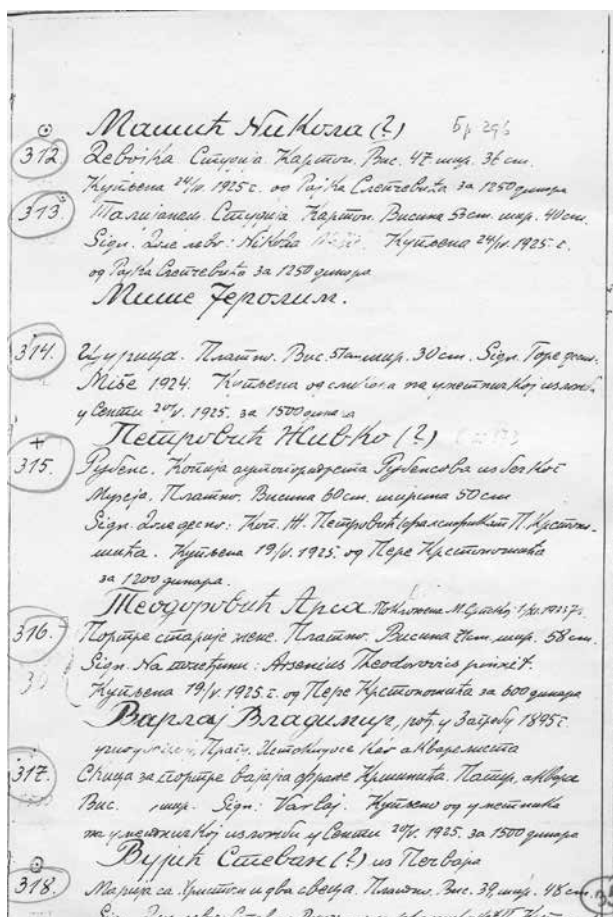 Машић Никола (?) Бр. 296
312. Девојка. Студија. Картон. Вис. 47. шир. 36 cm.
Купљена 24/IV. 1925 г. од Рајка Слепчевића за 1250 динара
313. Талијанац. Студија. Картон. Висина 53 cm. шир. 40 cm.
Sign. Доле лево: Nikola Купљена 24/IV. 1925. г.
од Рајка Слепчевића за 1250 динара
Мише Јеролим.
314. Платно. Вис. 51 cm шир. 30 cm. Sign. Горе десно.
Miše 1924. Купљена од на уметничкој изложби
у Сенти 20/V. 1925. за 1500 динара
Петровић Живко (?)
315. Рубенс. Копија аутопортрета Рубенсова из бечког
Музеја. Платно. Висина 60 cm. ширина 50 cm
Sign. Доле десно: Коп. Ж. Петровић П. Крстоно-
шића. Купљена 19/V. 1925. од Пере Крстоношића
за 1200 динара.
Теодоровић Арса.
316. Портре старије жене. Платно. Висина шир. 58 cm.
Sign. На полеђини: Arsenius Theodorovics pinxit.
Купљена 19/V. 1925. г. од Пере Крстоношића за 600 динара
Варлај Владимир, рођ. у Загребу 1895 г.
Прагу.
317. Скица за портре вајара Фране Кршинића. Папир,
Вис. шир. Sign: Varlaj. Купљено од уметника
на уметничкој изложби у Сенти 20/V. 1925. за 1500 динара
Вујић Стеван (?) из Печвара
318. Марија са Христом и два свеца. Платно. Вис. 39, шир. 48 cm.